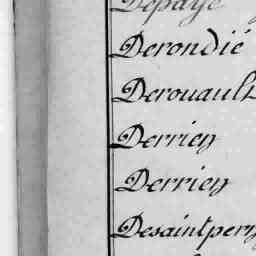 Depaye
Derondié
Derouault
Derrien
Derrien
Desaintpern